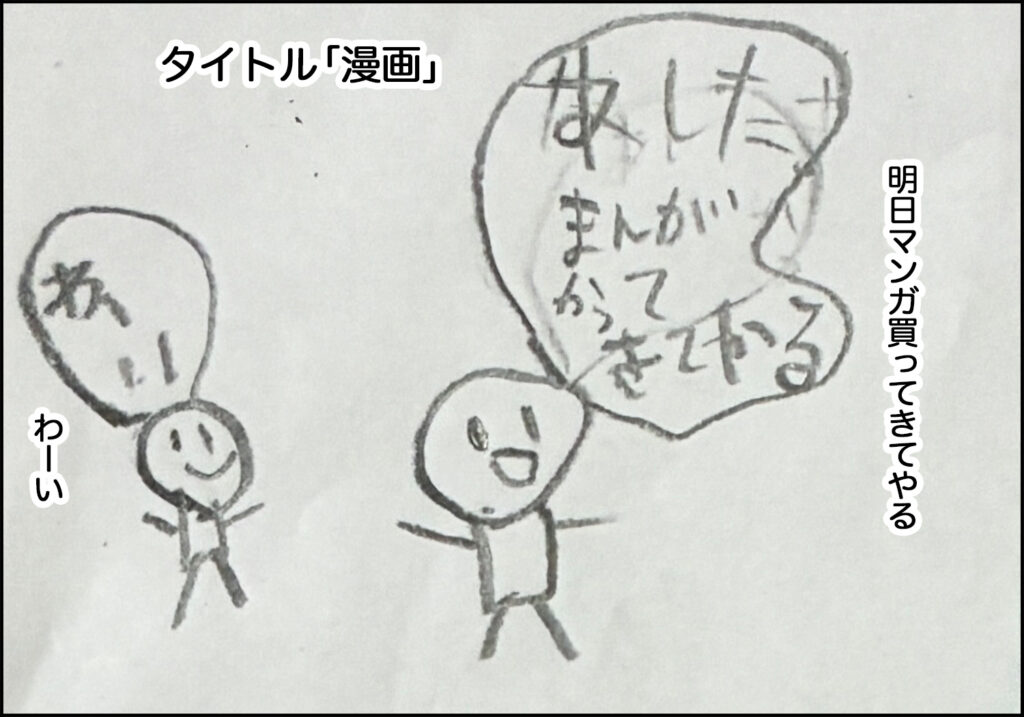 タイトル「漫画」
あした
まんが
かって
きてやる
明日マンガ買ってきてやる
わー
い
わーい